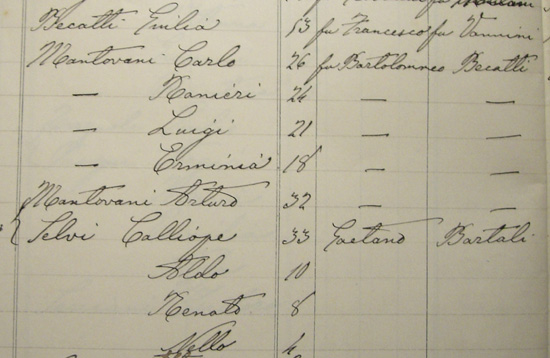 Becatti Emilia 53 fu Francesco fu Vannini
Mantovani Carlo 26 fu Bartolommeo Becatti
— Ranieri 24 — —
— Luigi 21 — —
— Erminia 18 — —
Mantovani Arturo 32 — —
Selvi Calliope 33 Gaetano Bartali
Aldo 10
Renato 8
Nello 4